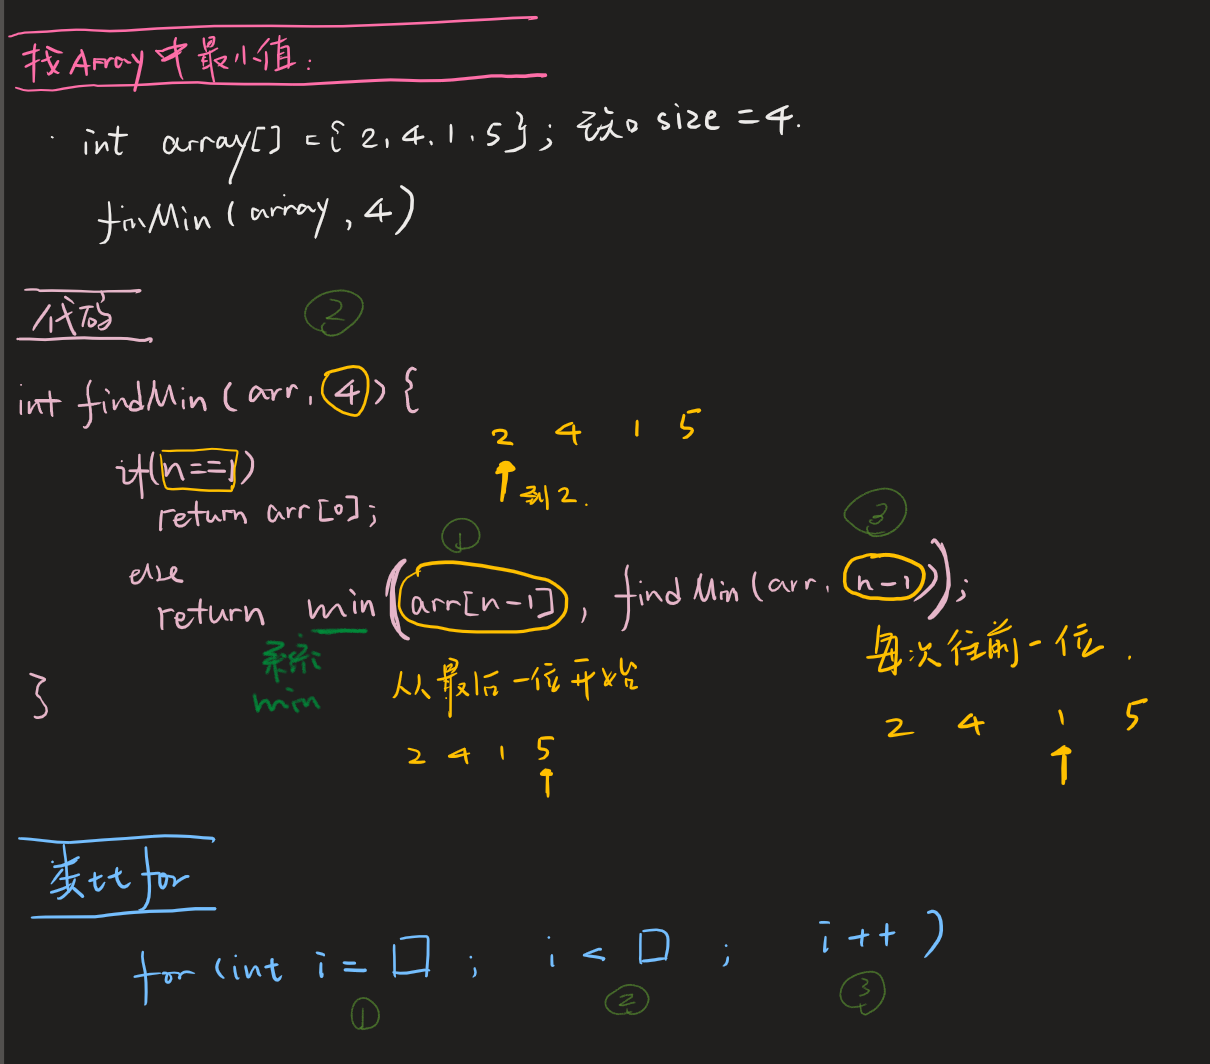 找Array中最小值：
int array[] = { 2, 4, 1, 5 }; size = 4.
finMin ( array , 4 )
代码
②
int findMin ( arr, 4 ) {
if( n==1 )
return arr[0];
2 4 1 5
到2.
① ③
else
return min ( arr[n-1] , findMin ( arr, n-1 ) );
系统
min
从最后一位开始
每次往前一位.
}
2 4 1 5
2 4 1 5
类比 for
for (int i = □ ; i < □ ; i++ )
① ② ③